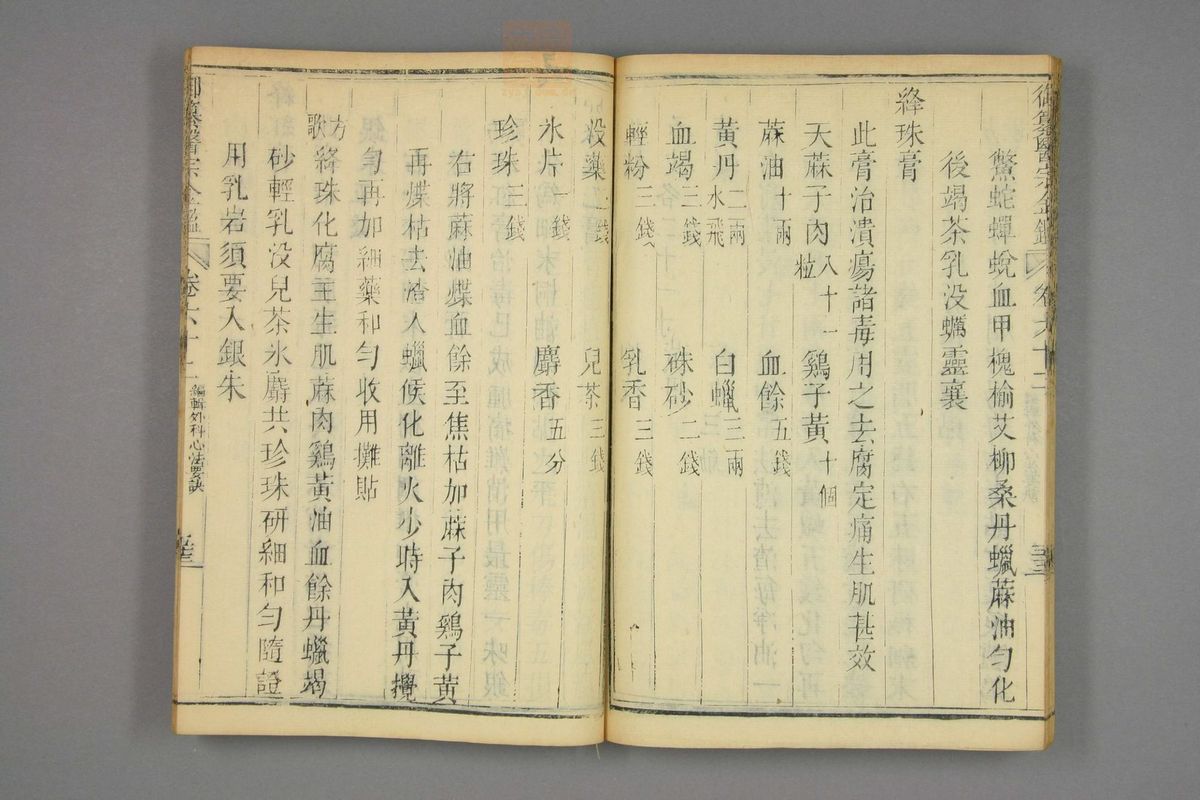 御纂醫宗金鑑 卷六十二
鱉蛇蟬蛻血甲槐榆艾柳桑丹蠟蔴油勻化
後竭茶乳没蠣靈襄
絳珠膏
此膏治潰瘍諸毒用之去腐定痛生肌甚效
天蔴子肉八十一粒 鷄子黄十個
蔴油十兩 血餘五錢
黄丹二兩水飛 白蠟三兩
血竭三錢 硃砂二錢
輕粉三錢 乳香三錢
没藥三錢 兒茶三錢
氷片一錢 麝香五分
珍珠三錢
右將蔴油煠血餘至焦枯加蔴子肉鷄子黄
再煠枯去渣入蠟候化離火少時入黄丹攪
勻再加細藥和勻收用攤貼
方歌 絳珠化腐主生肌蔴肉鷄黄油血餘丹蠟竭
砂輕乳没兒茶氷麝共珍珠研細和勻隨證
用乳岩須要入銀朱
御纂醫宗金鑑 卷六十二 編輯外科心法要訣